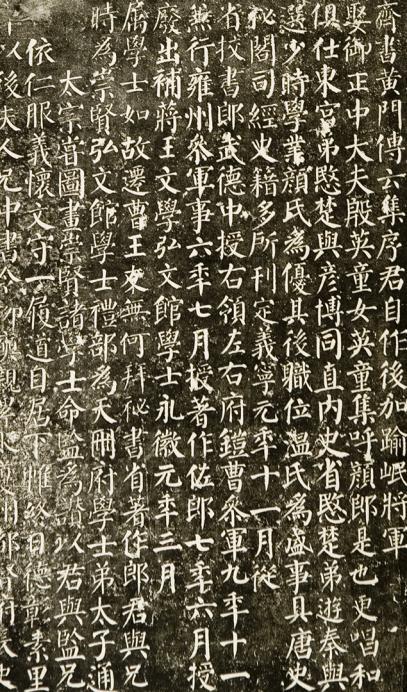 齊書黃門傳云集序君自作後加踰岷將軍
娶御正中大夫殷英童女英童集呼顏郎是也更唱和
俱仕東宮弟愍楚與彦博同直内史省愍楚弟遊秦與
選少時學業顏氏為優其後職位溫氏為盛事具唐史
秘閣司經史籍多所刊定義寧元年十一月從
省挍書郎武德中授右領左右府鎧曹叅軍九年十一
無行雍州叅軍事六年七月授著作佐郎七年六月授
廢出補蔣王文學弘文館學士永徽元年三月
属學士如故遷曹王友無何拜秘書省著作郎君與兄
時為崇賢弘文館學士禮部為天冊府學士弟太子通
太宗嘗圖畫崇賢諸學士命監為讚以君與監兄
依仁服義懷文守一履道自居下帷終日德彰素里
以後夫人兄中書令